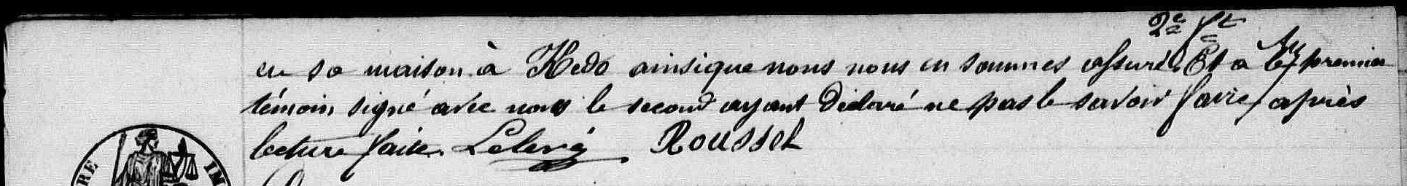 2e Ft
en sa maison à Kedo ainsi que nous nous en sommes assuré. Et a le premier
témoin signé avec nous le second ayant déclaré ne pas le savoir faire, après
lecture faite. Rousset
RE IM